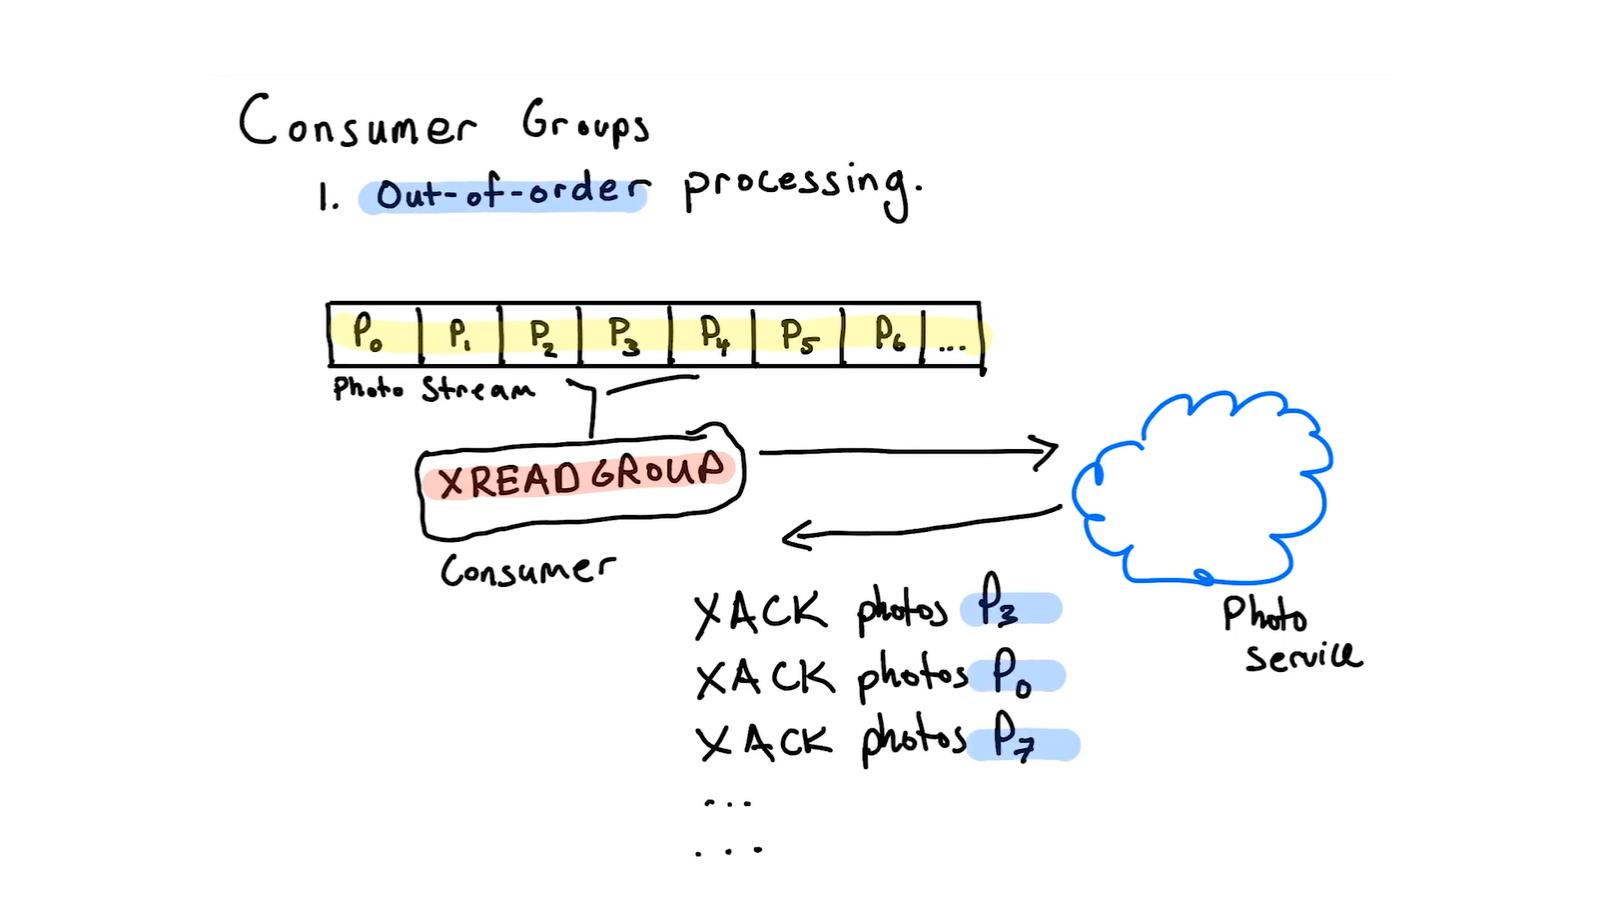 Consumer Groups
1. Out-of-order processing.
P0 P1 P2 P3 P4 P5 P6 ...
Photo Stream
XREADGROUP
Consumer
XACK photos P3
XACK photos P0
XACK photos P7
...
...
Photo
Service